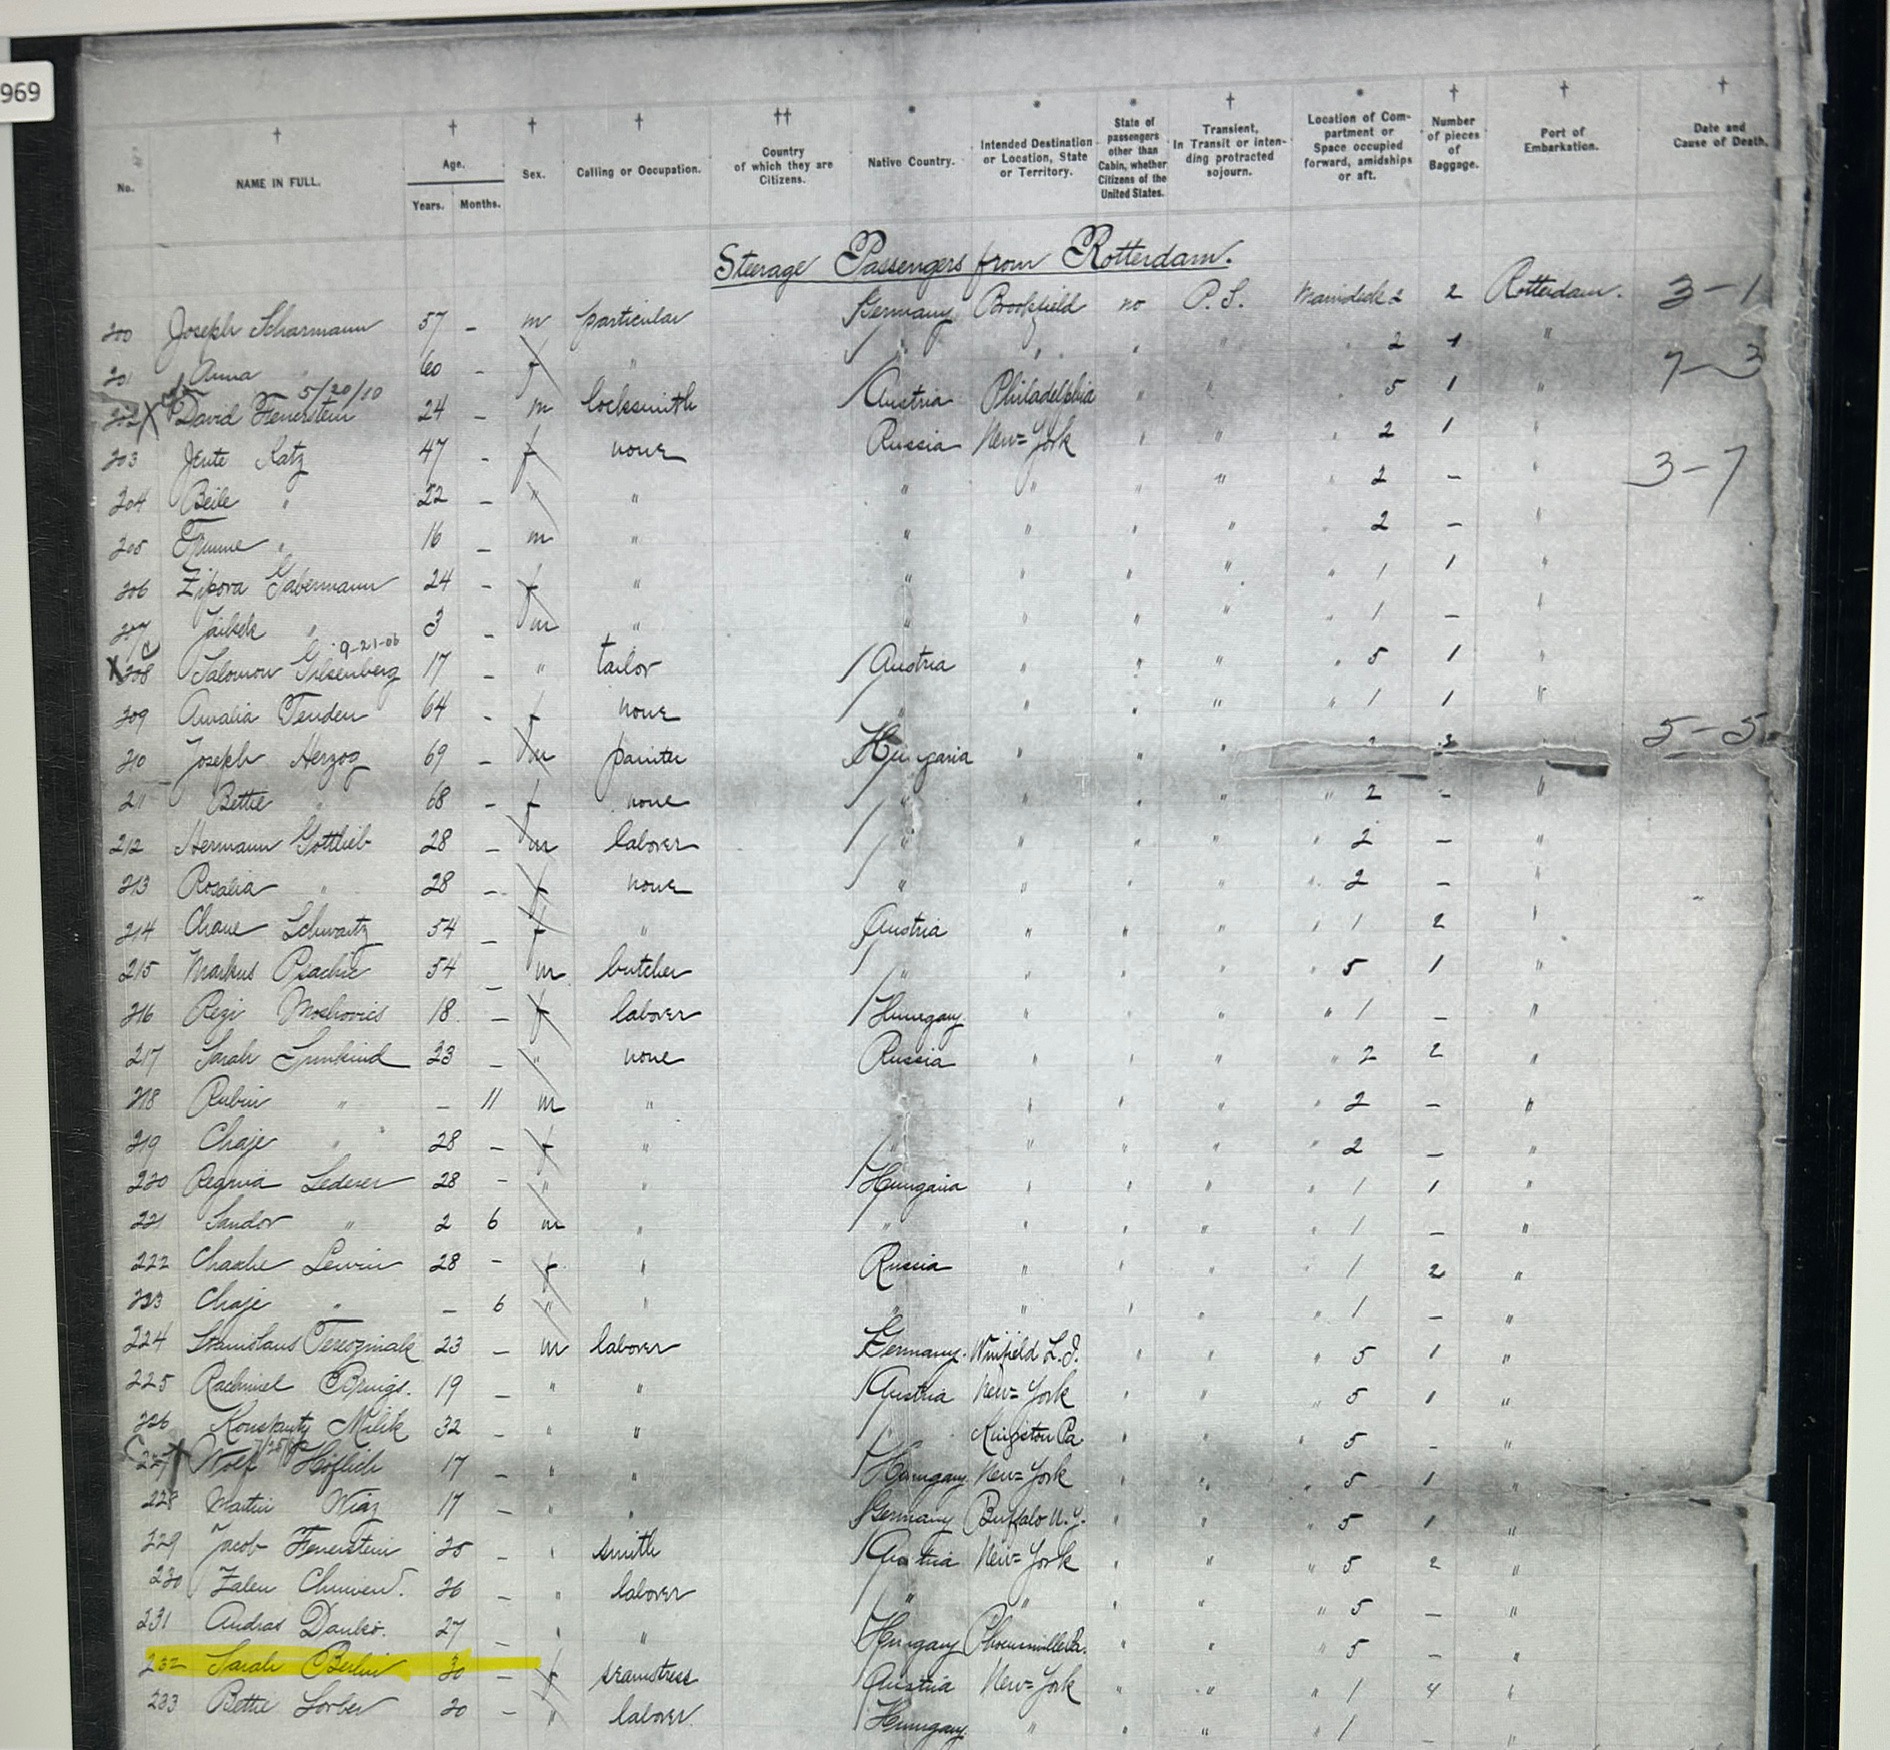 969
No.
NAME IN FULL.
Age.
Years. Months.
Sex.
Calling or Occupation.
Country of which they are Citizens.
Native Country.
Intended Destination or Location, State or Territory.
State of passengers other than Cabin, whether Citizens of the United States.
Transient, In Transit or intending protracted sojourn.
Location of Compartment or Space occupied forward, amidships or aft.
Number of pieces of Baggage.
Port of Embarkation.
Date and Cause of Death.
Steerage Passengers from Rotterdam.
200 Joseph Scharmann 57 - m particular Germany Brookfield no P. S. Maindeck 2 2 Rotterdam. 3-1
201 Anna " 60 - f " " " " " 2 1 " 7-3
5/20/10
202 X David Feuerstein 24 - m locksmith Austria Philadelphia " " 5 1 "
203 Jente Katz 47 - f none Russia New=York " " " 2 1 "
204 Beile " 22 - " " " " " " 2 - " 3-7
205 " 16 - m " " " " " " 2 - "
206 Zipora Gabermann 24 - f " " " " " " 1 1 "
207 " 3 - m " " " " " " 1 - "
9-21-06
X 208 Salomon Gilsenberg 17 - " tailor Austria " " " " 5 1 "
209 Amalia 64 - f none " " " " " 1 1 "
210 Joseph Herzog 69 - m painter Hungaria " " " " 5-5
211 Bettie " 68 - f none " " " " " 2 - "
212 Hermann Gottlieb 28 - m laborer " " " " " 2 - "
213 Rosalia " 28 - f none " " " " " 2 - "
214 Chane Schwartz 54 - f " Austria " " " " 1 2 "
215 Markus 54 - m butcher " " " " " 5 1 "
216 Regi Moskovics 18 - f laborer Hungary " " " " 1 - "
217 Sarah 23 - " none Russia " " " " 2 2 "
218 Rubin " - 11 m " " " " " 2 - "
219 Chaje " 28 - f " " " " " " 2 - "
220 Regina Lederer 28 - " " Hungaria " " " " 1 1 "
221 Sandor " 2 6 m " " " " " " 1 - "
222 Lewin 28 - f " Russia " " " " 1 2 "
223 Chaje " - 6 " " " " " " " 1 - "
224 Stanislaus 23 - m laborer Germany. Winfield L.I. " " " 5 1 "
225 19 - " " Austria New=York " " " 5 1 "
226 Milik 32 - " " " Kingston Pa. " " " 5 - "
227 Wolf Höflich 17 - " " Hungary New=York " " " 5 1 "
228 Martin 17 - " " Germany Buffalo N.Y. " " " 5 1 "
229 Jacob Feuerstein 25 - " smith Austria New=York " " " 5 2 "
230 26 - " laborer " " " " " 5 - "
231 Andras Danko. 27 - " " Hungary " " 5 - "
232 Sarah Berlin 30 - f seamstress Austria New=York " " " 1 4 "
233 Bettie Lorber 20 - " laborer. Hungary. " " " " 1 - "